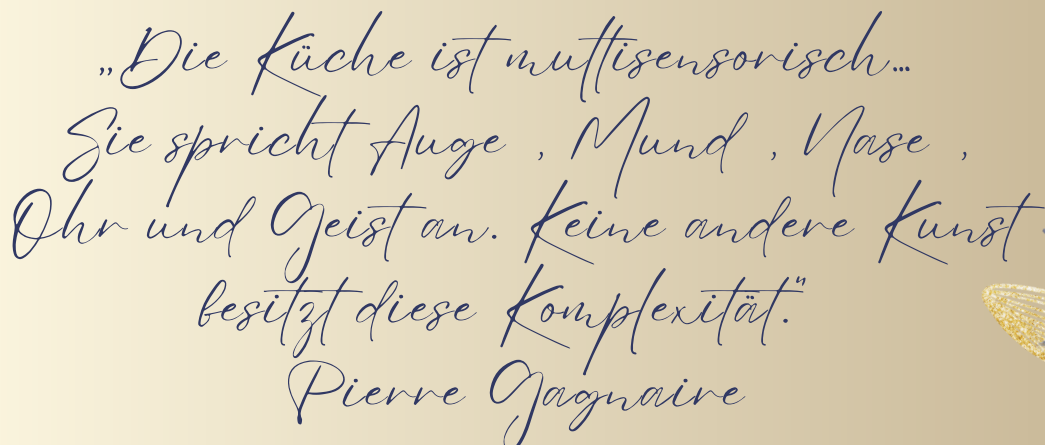 „Die Küche ist multisensorisch...
Sie spricht Auge , Mund , Nase ,
Ohr und Geist an. Keine andere Kunst
besitzt diese Komplexität."
Pierre Gagnaire